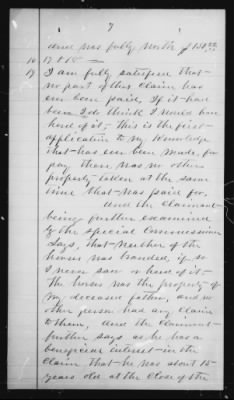 7
and was fully worth $150.00
16 17 & 18 —
19 I am fully satisfied that
no part of this claim has
ever been paid, If it had
been I do think I would have
herd of it, this is the first
application to my knowledge
that has ever been made, for
pay there was no other
property taken at the same
time that was paid for.
And the Claimant
being further examined
by the Special Commissioner
Says, that neither of the
horses was branded, if so
I never saw or herd of it—
The horses was the property of
my deceased father, and no
other person had any claim
to them, And the Claimant
further says as he has a
beneficial interest in the
claim that he was about 15
years old at the close of the